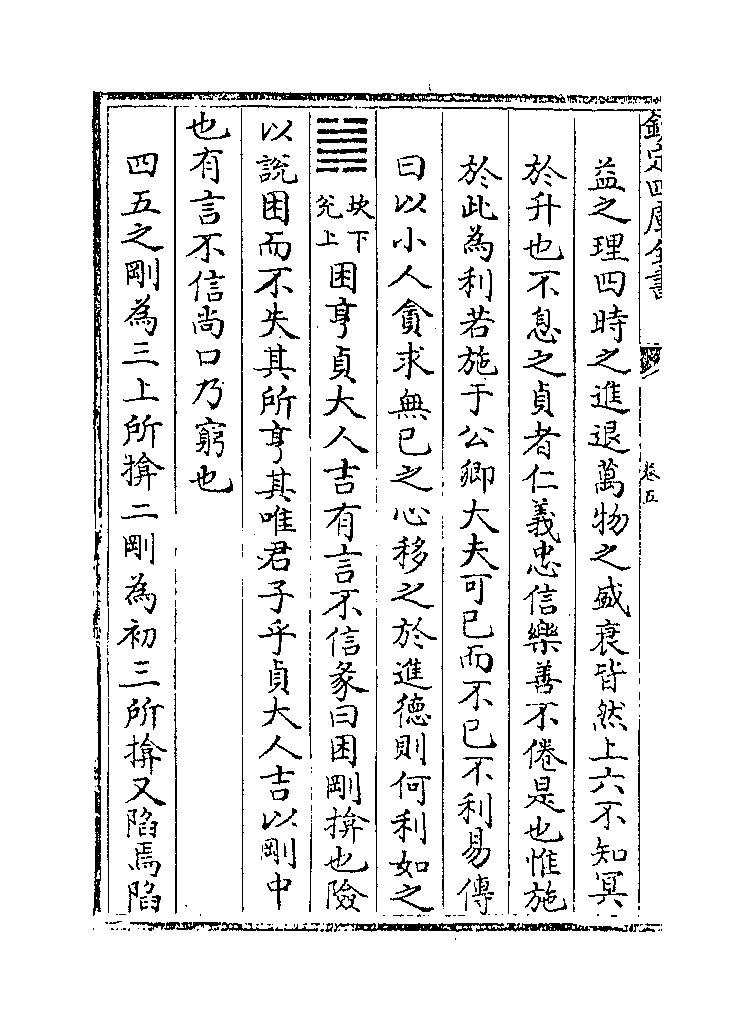 欽定四庫全書
卷五
益之理四時之進退萬物之盛衰皆然上六不知冥
於升也不息之貞者仁義忠信樂善不倦是也惟施
於此為利若施于公卿大夫可已而不已不利易傳
曰以小人貪求無已之心移之於進德則何利如之
坎下
兊上
困亨貞大人吉有言不信彖曰困剛揜也險
以說困而不失其所亨其唯君子乎貞大人吉以剛中
也有言不信尚口乃窮也
四五之剛為三上所揜二剛為初三所揜又陷焉陷